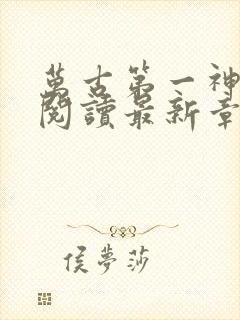 萬古第一神
閱讀最新章
侯夢莎